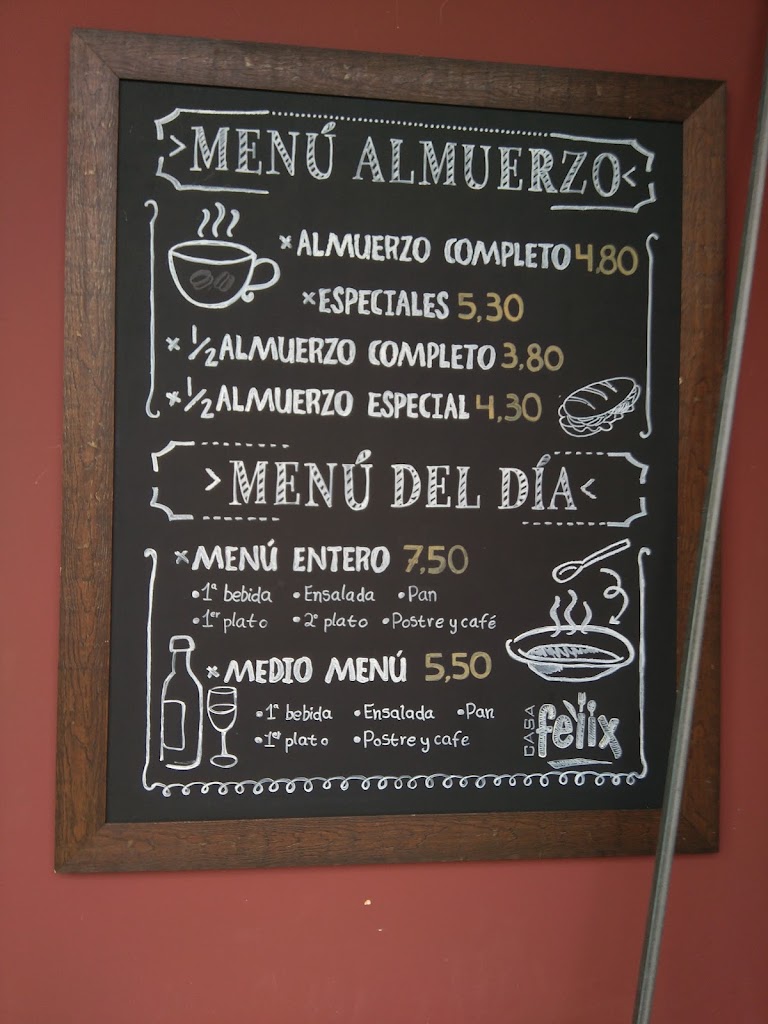 >MENÚ ALMUERZO<
×ALMUERZO COMPLETO 4,80
×ESPECIALES 5,30
×1/2 ALMUERZO COMPLETO 3,80
×1/2 ALMUERZO ESPECIAL 4,30
>MENÚ DEL DÍA<
×MENÚ ENTERO 7,50
•1ª bebida •Ensalada •Pan
•1er plato •2º plato •Postre y café
×MEDIO MENÚ 5,50
•1ª bebida •Ensalada •Pan
•1er plato •Postre y cafe
CASA felix